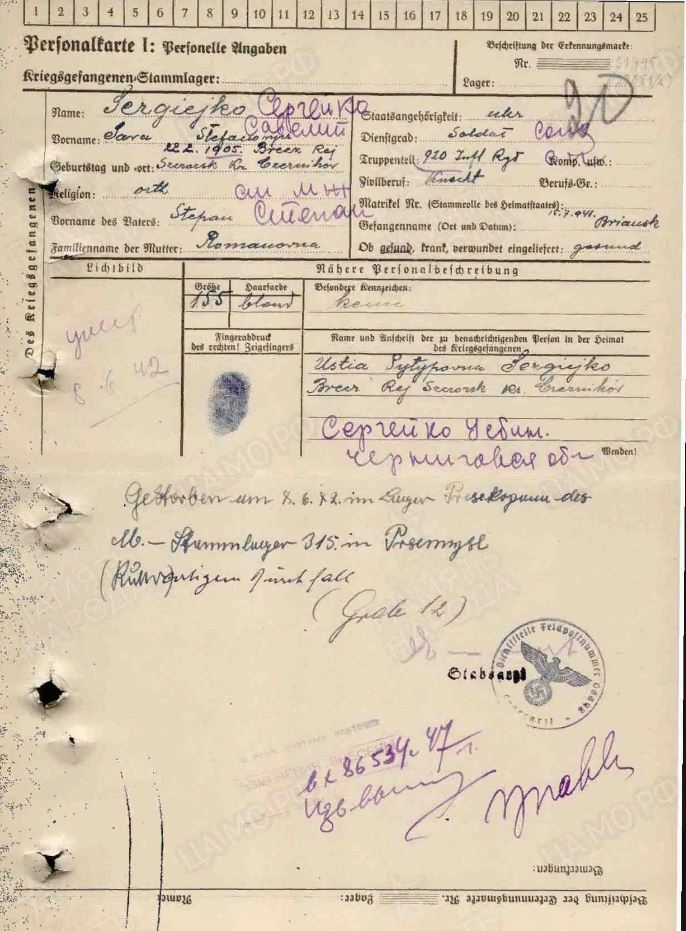 1 2 3 4 5 6 7 8 9 10 11 12 13 14 15 16 17 18 19 20 21 22 23 24 25
Personalkarte I: Personelle Angaben
Kriegsgefangenen-Stammlager:
Beschriftung der Erkennungsmarke:
Nr.
Lager:
Des Kriegsgefangenen
Name: Sergiejko Сергейко
Vorname: Sawa Stefanowij Савелий
22.2.1905. Brecz Rej
Geburtstag und -ort: Szczorsk Kr. Czernihów
Religion: orth
Vorname des Vaters: Stepan Степан
Familienname der Mutter: Romanowna
Staatsangehörigkeit: ukr
Dienstgrad: Soldat
Truppenteil: 920 Inf Rgt Komp. usw.:
Zivilberuf: Knecht Berufs-Gr.:
Matrikel Nr. (Stammrolle des Heimatstaates):
Gefangennahme (Ort und Datum): 15.7.941. Briansk
Ob gesund, krank, verwundet eingeliefert: gesund
Lichtbild
умер
8.6.42
Nähere Personalbeschreibung
Größe Haarfarbe Besondere Kennzeichen:
155 blond keine
Fingerabdruck
des rechten! Zeigefingers
Name und Anschrift der zu benachrichtigenden Person in der Heimat
des Kriegsgefangenen
Ustia Sergiejko
Brecz Rej Szczorsk Kr. Czernihów
Сергейко Устин.
Черниговская обл
Wenden!
Gestorben am 8.6.42. im Lager des
M.-Stammlager 315. in Przemysl
(Ruhrartigem Durchfall
(Grab 12)
Stabsarzt
Dienststelle Feldpostnummer
вх 86534-47
Bemerkungen:
Beschriftung der Erkennungsmarke Nr. Lager: Name: